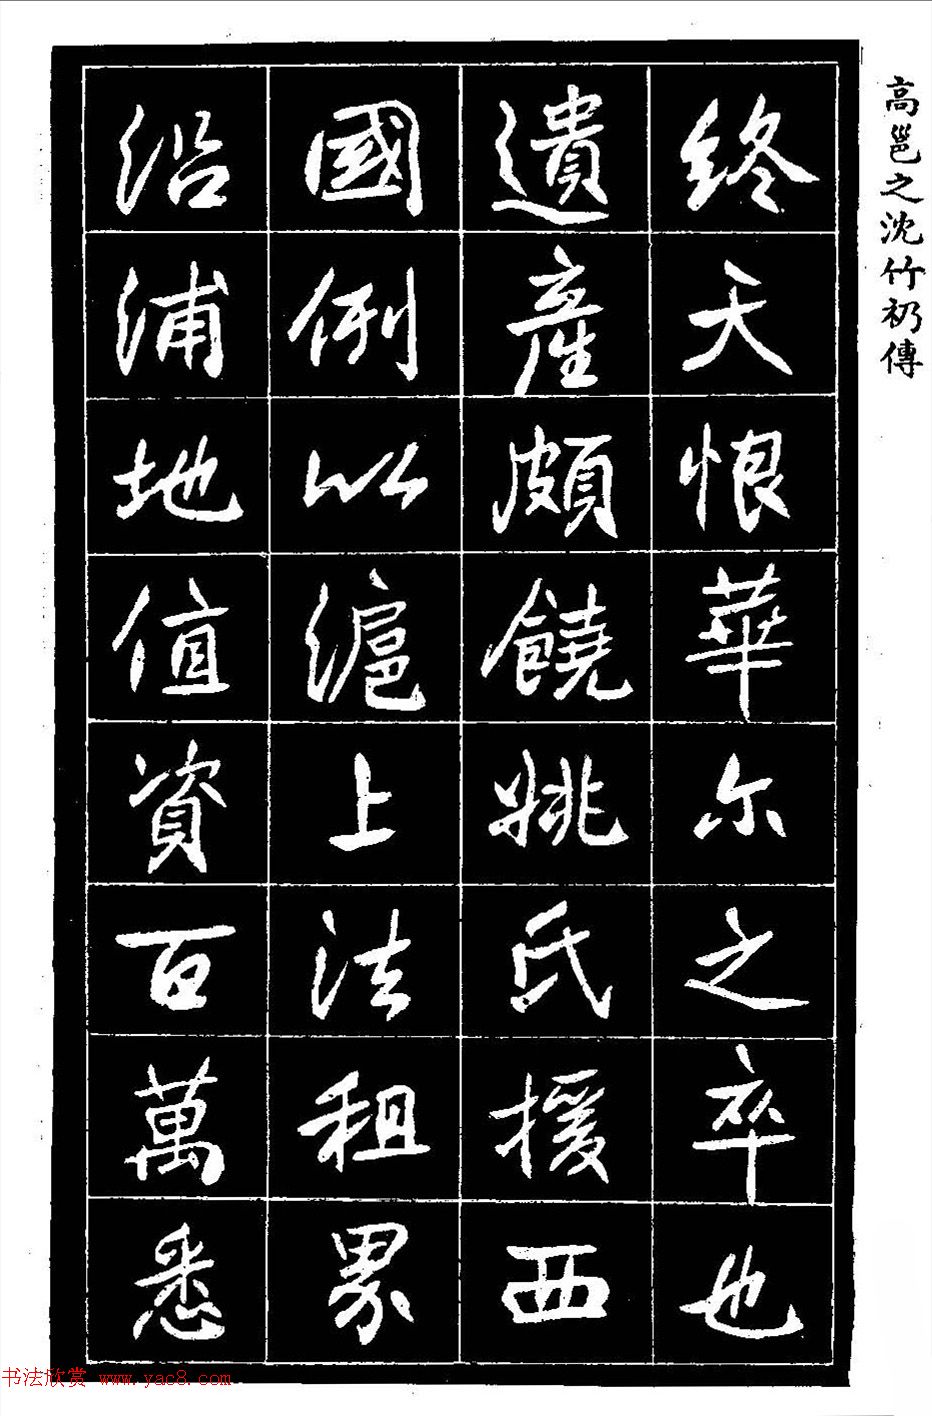 高邕之沈竹礽傳
終天恨華尓之卒也
遺產頗饒姚氏援西
國例以滬上法租界
沿浦地值資百萬悉
书法欣赏 www.yac8.com